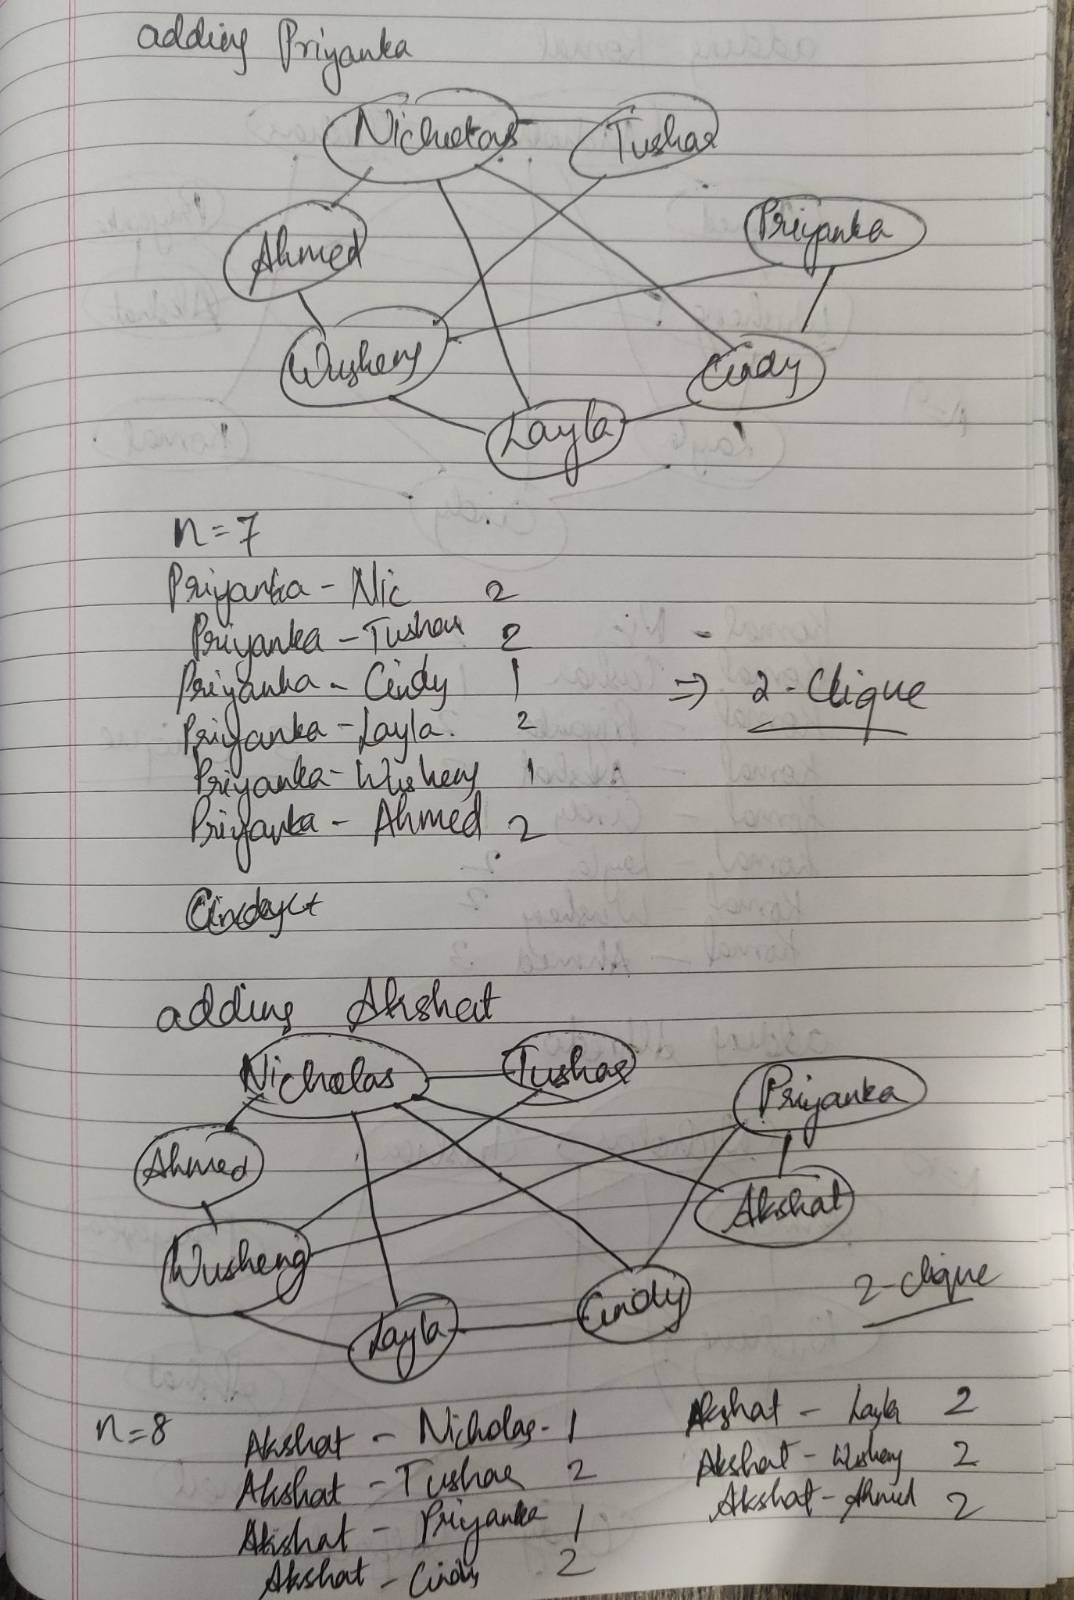 adding Priyanka
Nicholas
Tushar
Priyanka
Ahmed
Wusheng
Cindy
Layla
n=7
Priyanka - Nic 2
Priyanka - Tushar 2
Priyanka - Cindy 1 => 2-Clique
Priyanka - Layla. 2
Priyanka - Wusheng 1
Priyanka - Ahmed 2
adding Akshat
Nicholas
Tushar
Priyanka
Ahmed
Akshat
Wusheng
Cindy
2-clique
Layla
n=8
Akshat - Nicholas - 1
Akshat - Tushar 2
Akshat - Priyanka 1
Akshat - Cindy 2
Akshat - Layla 2
Akshat - Wusheng 2
Akshat - Ahmed 2